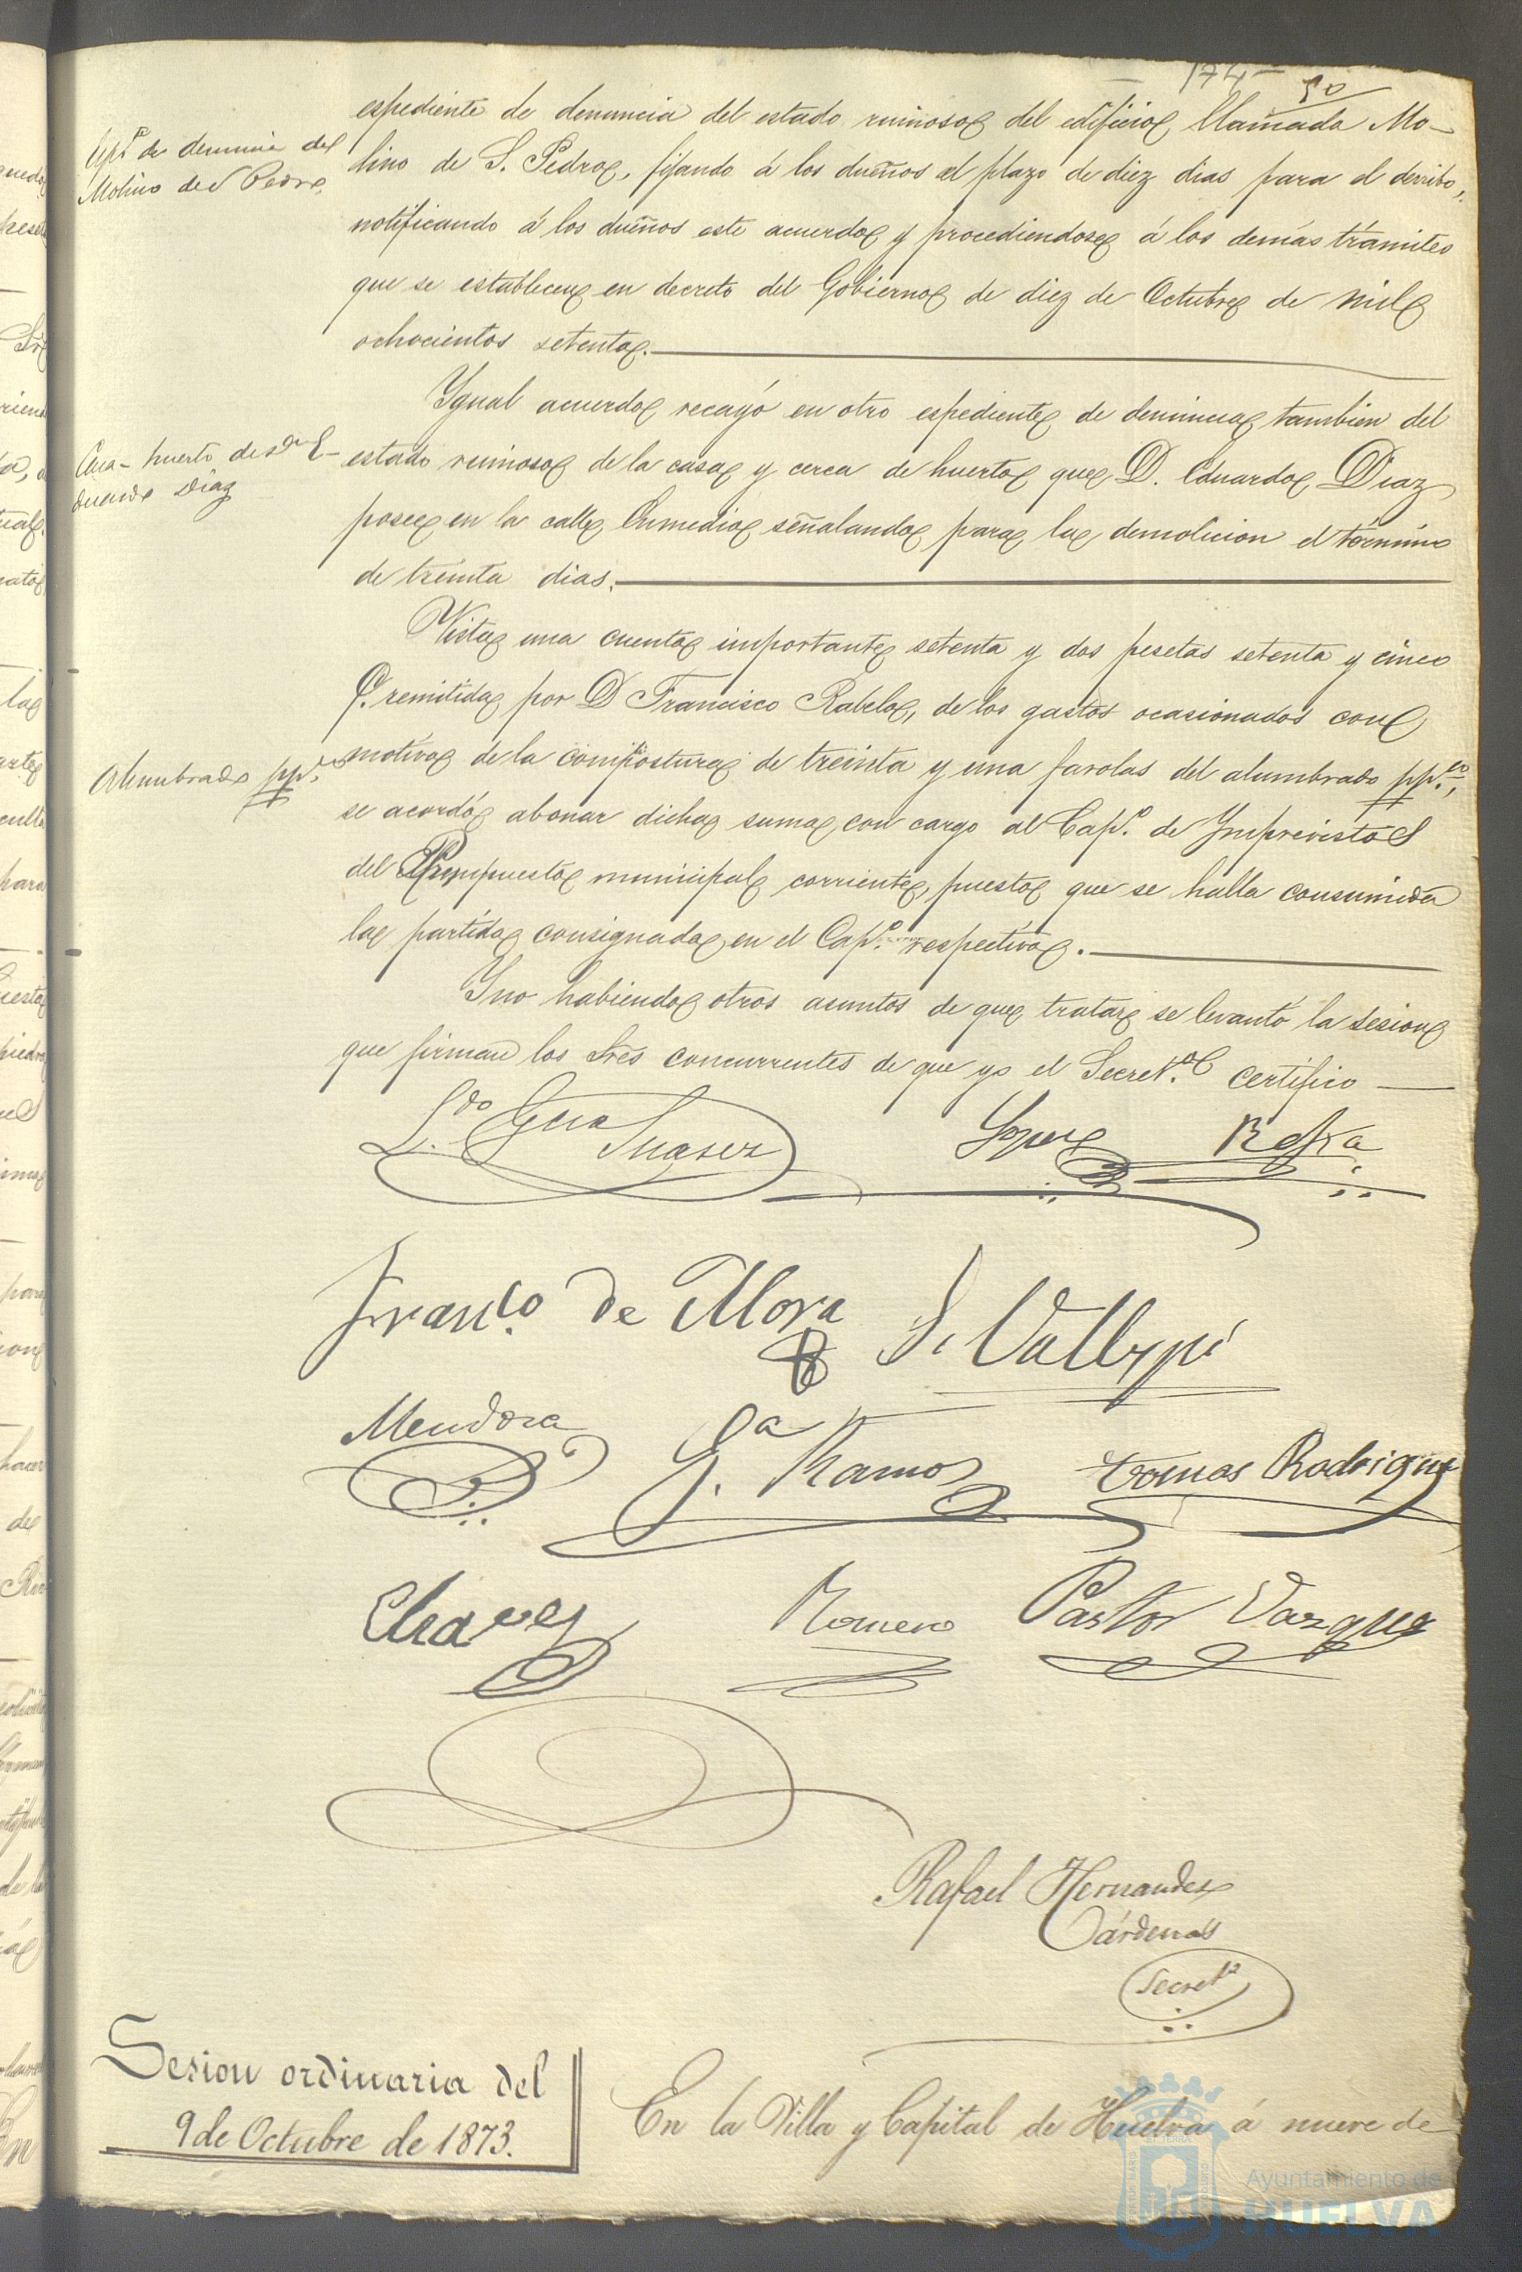 174
50
espediente de denuncia del estado ruinoso del edificio llamado Mo-
Espte de denuncia del
Molino de S Pedro
lino de S. Pedro, fijando á los dueños el plazo de diez dias para el derribo,
notificando á los dueños este acuerdo y procediendose á los demás trámites
que se establecen en decreto del Gobierno de diez de Octubre de mil
ochocientos setenta.
Ygual acuerdo recayó en otro espediente de denuncia tambien del
Casa-huerto de Dn E-
duardo Diaz
estado ruinoso de la casa y cerca de huerto que D. Eduardo Diaz
posee en la calle Enmedio señalando para la demolicion el término
de treinta dias.
Vista una cuenta importante setenta y dos pesetas setenta y cinco
Cs. remitida por D Francisco Rabelo, de los gastos ocasionados con
Alumbrado ppco
motivo de la compostura de treinta y una farolas del alumbrado ppco,
se acordó abonar dicha suma con cargo al Capo. de Ymprevistos
del Presupuesto municipal corriente, puesto que se halla consumida
la partida consignada en el Capo. respectivo.
Y no habiendo otros asuntos de que tratar se levantó la sesion
que firman los Sres concurrentes de que yo el Secreto. certifico
L.do Gcia Suarez
Lopez
Franco. de Mora
S. Vallespí
Mendoza
Ga. Ramos
Tomas Rodriguez
Chaves
Romero
Pastor Vazquez
Rafael Hernandez
Cárdenas
Secreto
Sesion ordinaria del
9 de Octubre de 1873.
En la Villa y Capital de Huelva á nueve de
Ayuntamiento de
HUELVA